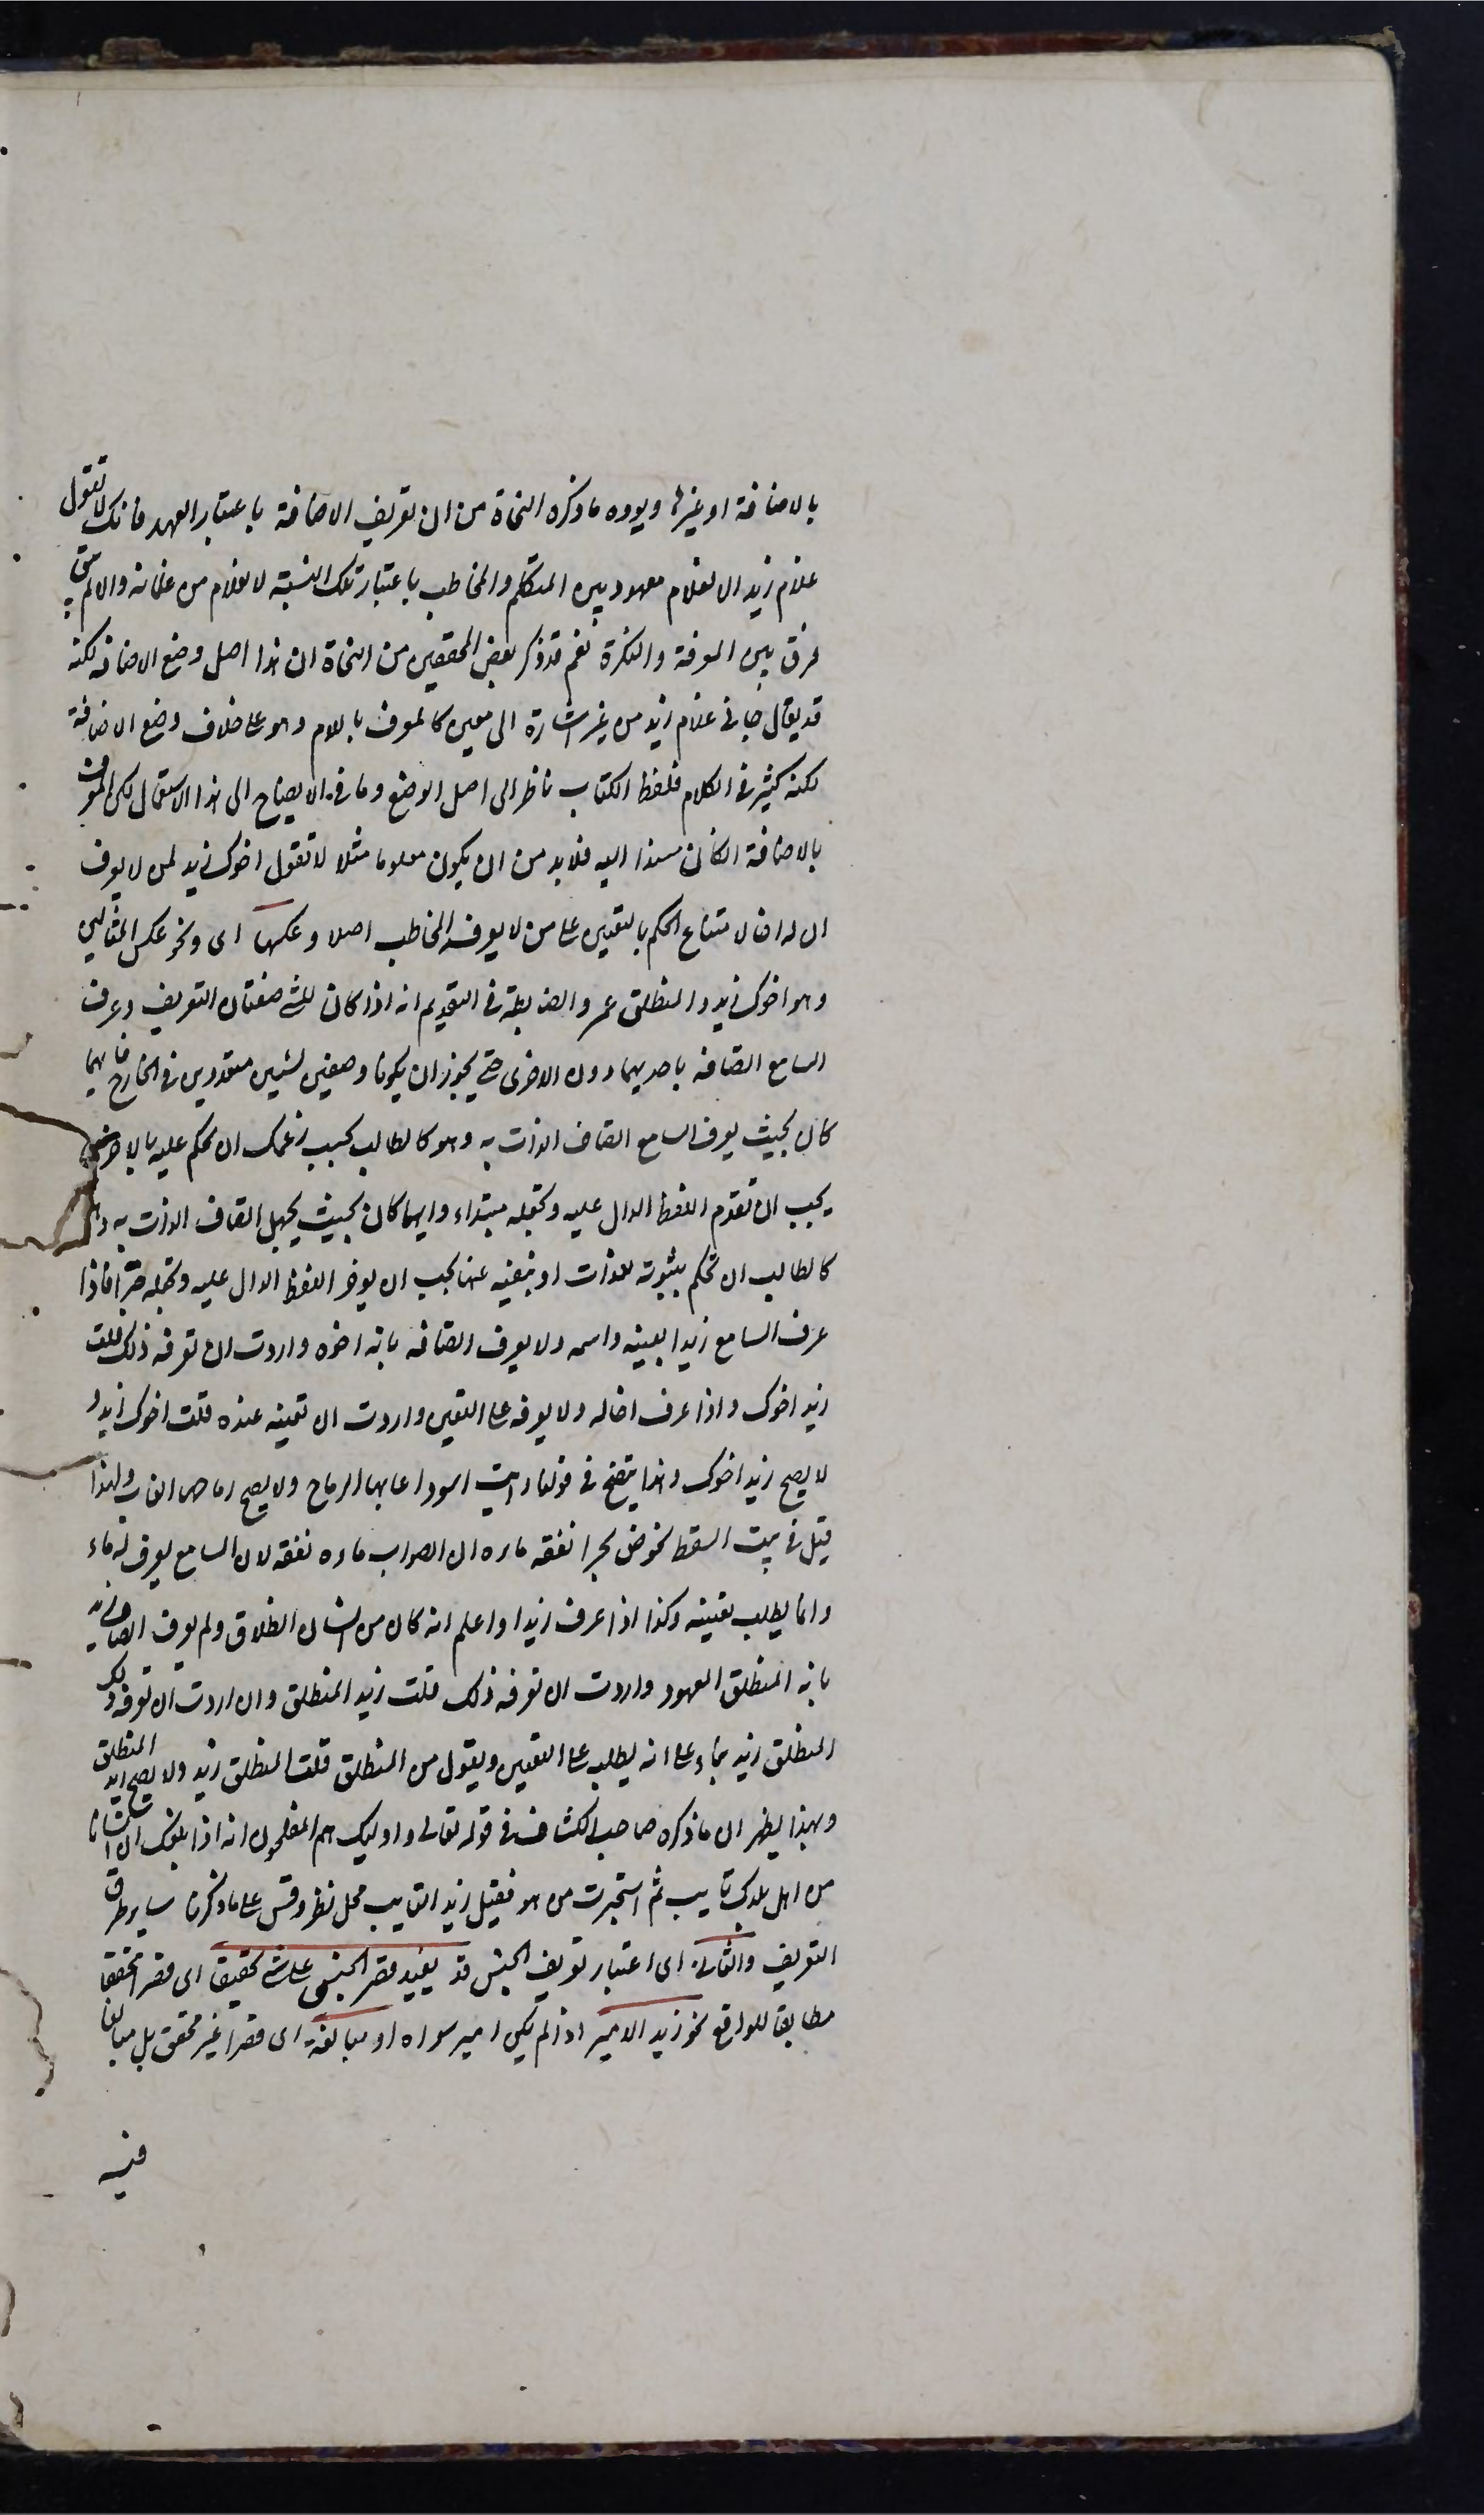 بالاضافة او غيرها ويوده ماذكره النحاة من ان تعريف الاضافة باعتبار العهد فانك لا تقول
غلام زيد الا لغلام معهود بين المتكلم والمخاطب باعتبار تلك النسبة لا لغلام من غلمانه والا لم يبق
فرق بين المعرفة والنكرة نعم قد ذكر بعض المحققين من النحاة ان هذا اصل وضع الاضافة لكنه
قد يقال جاني غلام زيد من غير اشارة الى معين كالمعرف باللام وهو على خلاف وضع الاضافة
لكنه كثير في الكلام فلفظ الكتاب ناظر الى اصل الوضع وما في الايضاح الى هذا الاستعمال لكن المعرف
بالاضافة اذا كان مسندا اليه فلابد من ان يكون معلوما مثلا لا تقول اخوك زيد لمن لا يعرف
ان له اخا لامتناع الحكم بالتعيين على من لا يعرفه المخاطب اصلا وعكسها اى ونحو عكس المثالين
وهو اخوك زيد والمنطلق عمرو والضابطة في التقديم انه اذا كان للشئ صفتان التعريف وعرف
السامع اتصافه باحديهما دون الاخرى حتى يجوز ان يكونا وصفين لشيئين متعددين في الخارج فايهما
كان بحيث يعرف السامع اتصاف الذات به وهو كالطالب بحسب زعمك ان تحكم عليه بالاخر
يجب ان تقدم اللفظ الدال عليه وتجعله مبتداء وايهما كان بحيث يجهل اتصاف الذات به وهو
كالطالب ان تحكم بثبوته للذات او بنفيه عنها يجب ان يؤخر اللفظ الدال عليه وتجعله خبرا فاذا
عرف السامع زيدا بعينه واسمه ولا يعرف اتصافه بانه اخوه واردت ان تعرفه ذلك قلت
زيد اخوك واذا عرف اخا له ولا يعرفه على التعيين واردت ان تعينه عنده قلت اخوك زيد و
لا يصح زيد اخوك وهذا يتضح في قولنا رايت اسودا غابها الرماح ولا يصح رماحها الغاب ولهذا
قيل في بيت السقط يخوض بحرا نقعه ماءه ان الصواب ماءه نقعه لان السامع يعرف له ماء
وانما يطلب تعيينه وكذا اذا عرف زيدا واعلم انه كان من انسان انطلاق ولم يعرف اتصاف زيد
بانه المنطلق المعهود واردت ان تعرفه ذلك قلت زيد المنطلق وان اردت ان تعرفه ذلك
المنطلق زيد بناء على انه يطلبه على التعيين ويقول من المنطلق قلت المنطلق زيد ولا يصح زيد المنطلق
وبهذا يظهر ان ماذكره صاحب الكشاف في قوله تعالى واوليك هم المفلحون انه اذا بلغك ان انسانا
من اهل بلدك تايب ثم استخبرت من هو فقيل زيد التايب محل نظر وقس على ماذكرنا ساير طرق
التعريف والثاني اى اعتبار تعريف الجنس قد يفيد قصر الجنس على شئ تحقيقا اى قصرا محققا
مطابقا للواقع نحو زيد الامير اذا لم يكن امير سواه او مبالغة اى قصرا غير محقق بل مبالغا
فيه